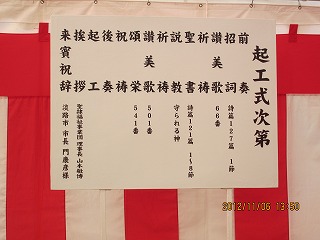 起工式次第
前奏
招詞 詩篇127篇 1節
讃美歌 66番
祈祷
聖書 詩篇121篇 1〜8節
説教 守られる神
祈祷
讃美歌 501番
頌栄 541番
祝祷
後奏
起工
挨拶 聖隷福祉事業団 理事長 山本敏博
来賓祝辞 淡路市 市長 門康彦様
2012/11/06 13:50